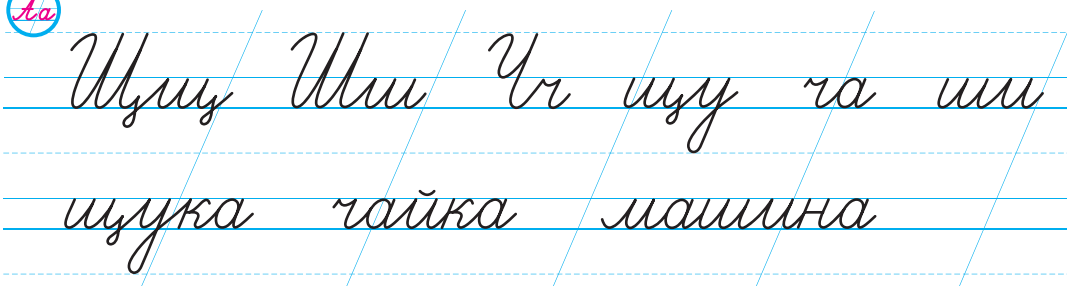 Аа
Щщ Шш Чч щу ча ши
щука чайка машина